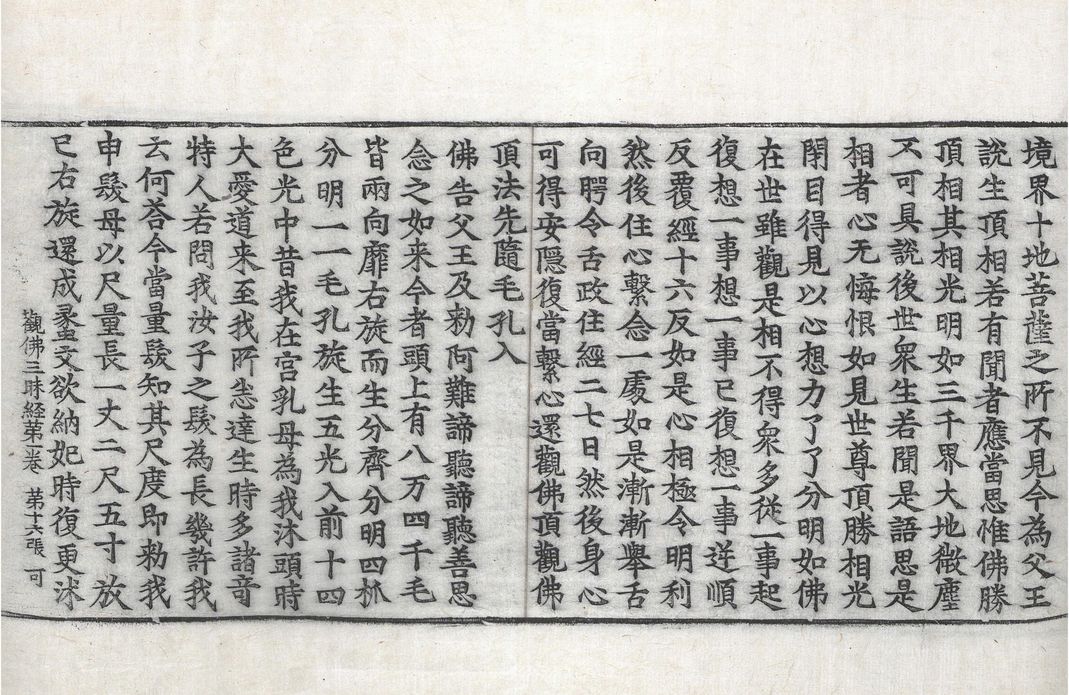 境界十地菩薩之所不見今為父王
說生頂相若有聞者應當思惟佛勝
頂相其相光明如三千界大地微塵
不可具說後世衆生若聞是語思是
相者心无悔恨如見世尊頂勝相光
閇目得見以心想力了了分明如佛
在世雖觀是相不得衆多從一事起
復想一事想一事已復想一事逆順
反覆經十六反如是心相極令明利
然後住心繫念一處如是漸漸舉舌
向腭令舌政住經二七日然後身心
可得安隱復當繫心還觀佛頂觀佛
頂法先隨毛孔入
佛告父王及勑阿難諦聽諦聽善思
念之如来今者頭上有八万四千毛
皆兩向靡右旋而生分齊分明四抓
分明一一毛孔旋生五光入前十四
色光中昔我在宫乳母為我沐頭時
大愛道来至我所悉達生時多諸竒
特人若問我汝子之髮為長幾許我
云何荅今當量髮知其尺度即勑我
申髮母以尺量長一丈二尺五寸放
已右旋還成蠡文欲納妃時復更沐
觀佛三昧経第一卷　第十六張　可